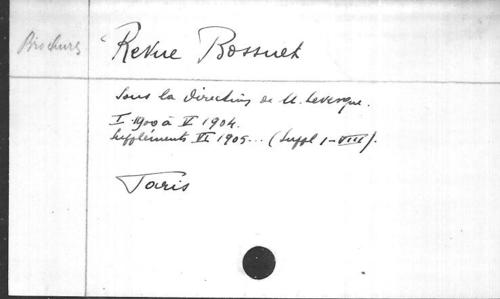 Brochures
Revue Bossuet
sous la direction de M. Levesque.
I 1900 à V 1904.
Suppléments VI 1905... (Suppl I-VIII).
Paris